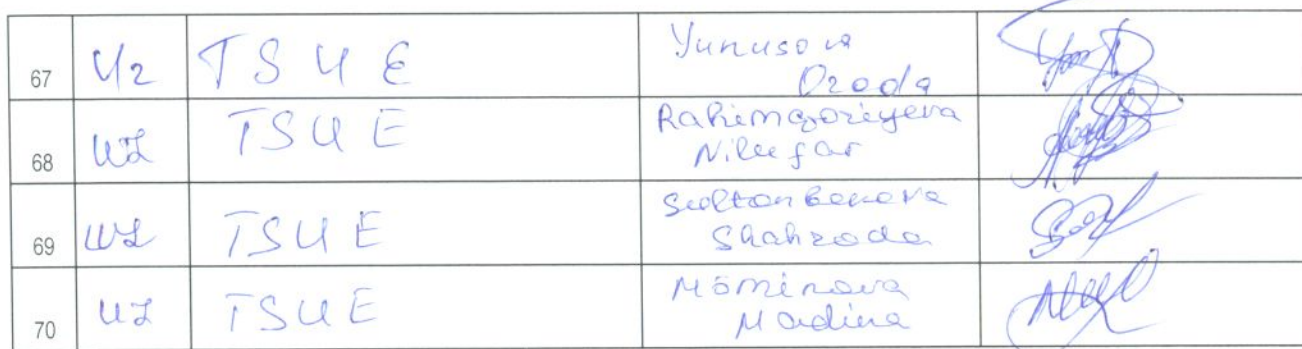 67 Uz TSUE Yunusova
Ozoda
68 UZ TSUE Rahimqoriyeva
Nilufar
69 UZ TSUE Sultonbekova
Shahzoda
70 UZ TSUE Möminova
Madina